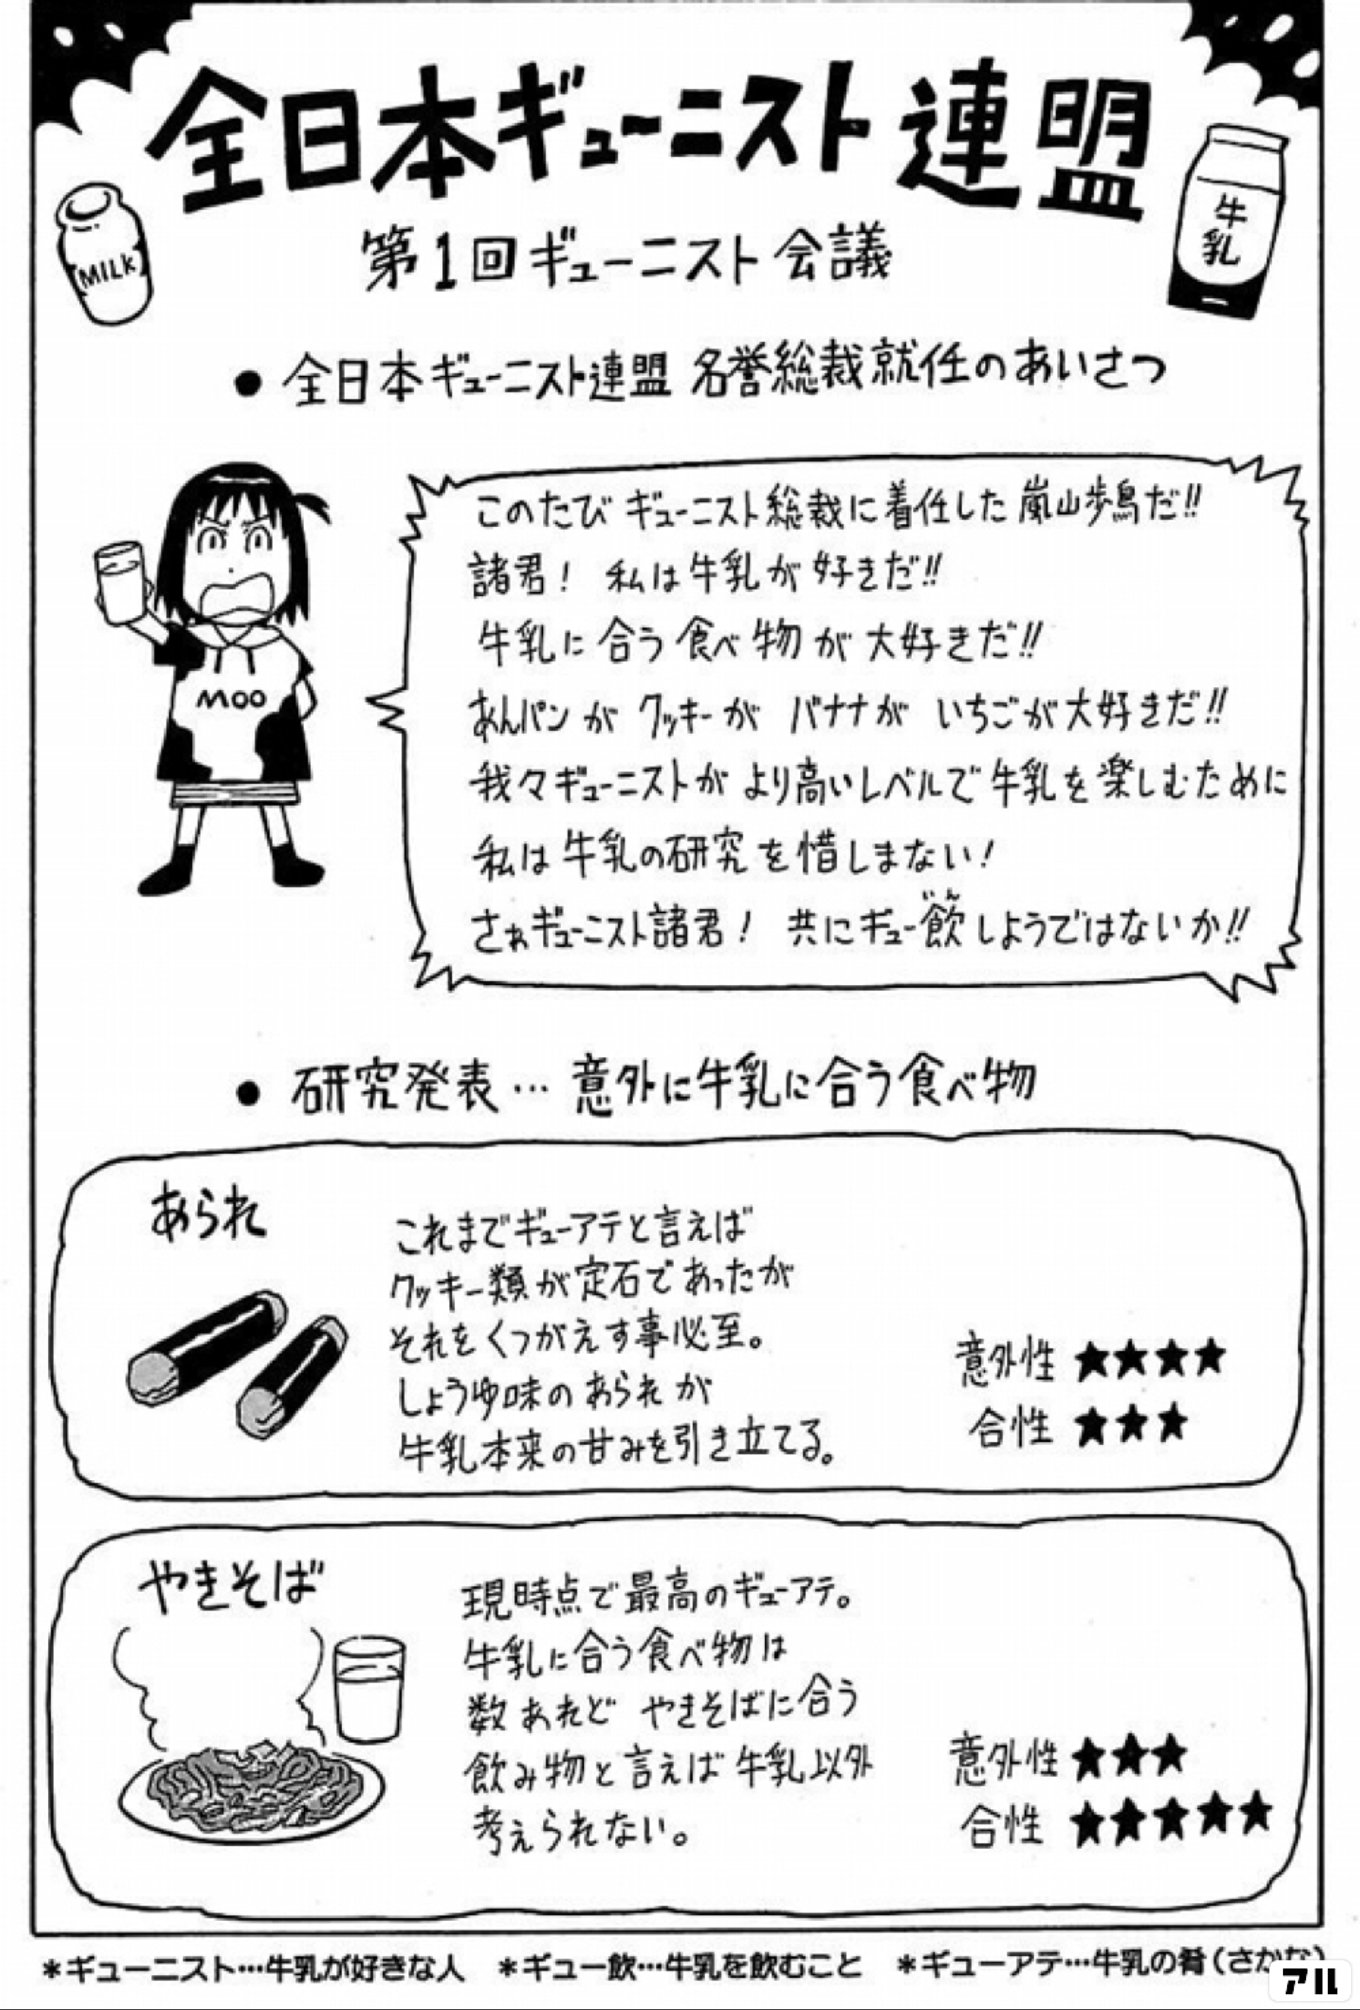 全日本ギューニスト連盟
MILK
牛乳
第1回ギューニスト会議
● 全日本ギューニスト連盟 名誉総裁就任のあいさつ
MOO
このたび ギューニスト総裁に着任した 嵐山歩鳥だ!!
諸君! 私は牛乳が好きだ!!
牛乳に合う食べ物が大好きだ!!
あんパンが クッキーが バナナが いちごが大好きだ!!
我々ギューニストが より高いレベルで牛乳を楽しむために
私は牛乳の研究を惜しまない!
さぁギューニスト諸君! 共にギュー飲しようではないか!!
いん
● 研究発表… 意外に牛乳に合う食べ物
あられ
これまでギューアテと言えば
クッキー類が定石であったが
それをくつがえす事必至。
しょうゆ味のあられが
牛乳本来の甘みを引き立てる。
意外性 ★★★★
合性 ★★★
やきそば
現時点で最高のギューアテ。
牛乳に合う食べ物は
数あれど やきそばに合う
飲み物と言えば牛乳以外
考えられない。
意外性 ★★★
合性 ★★★★★
*ギューニスト…牛乳が好きな人 *ギュー飲…牛乳を飲むこと *ギューアテ…牛乳の肴(さかな)
アル